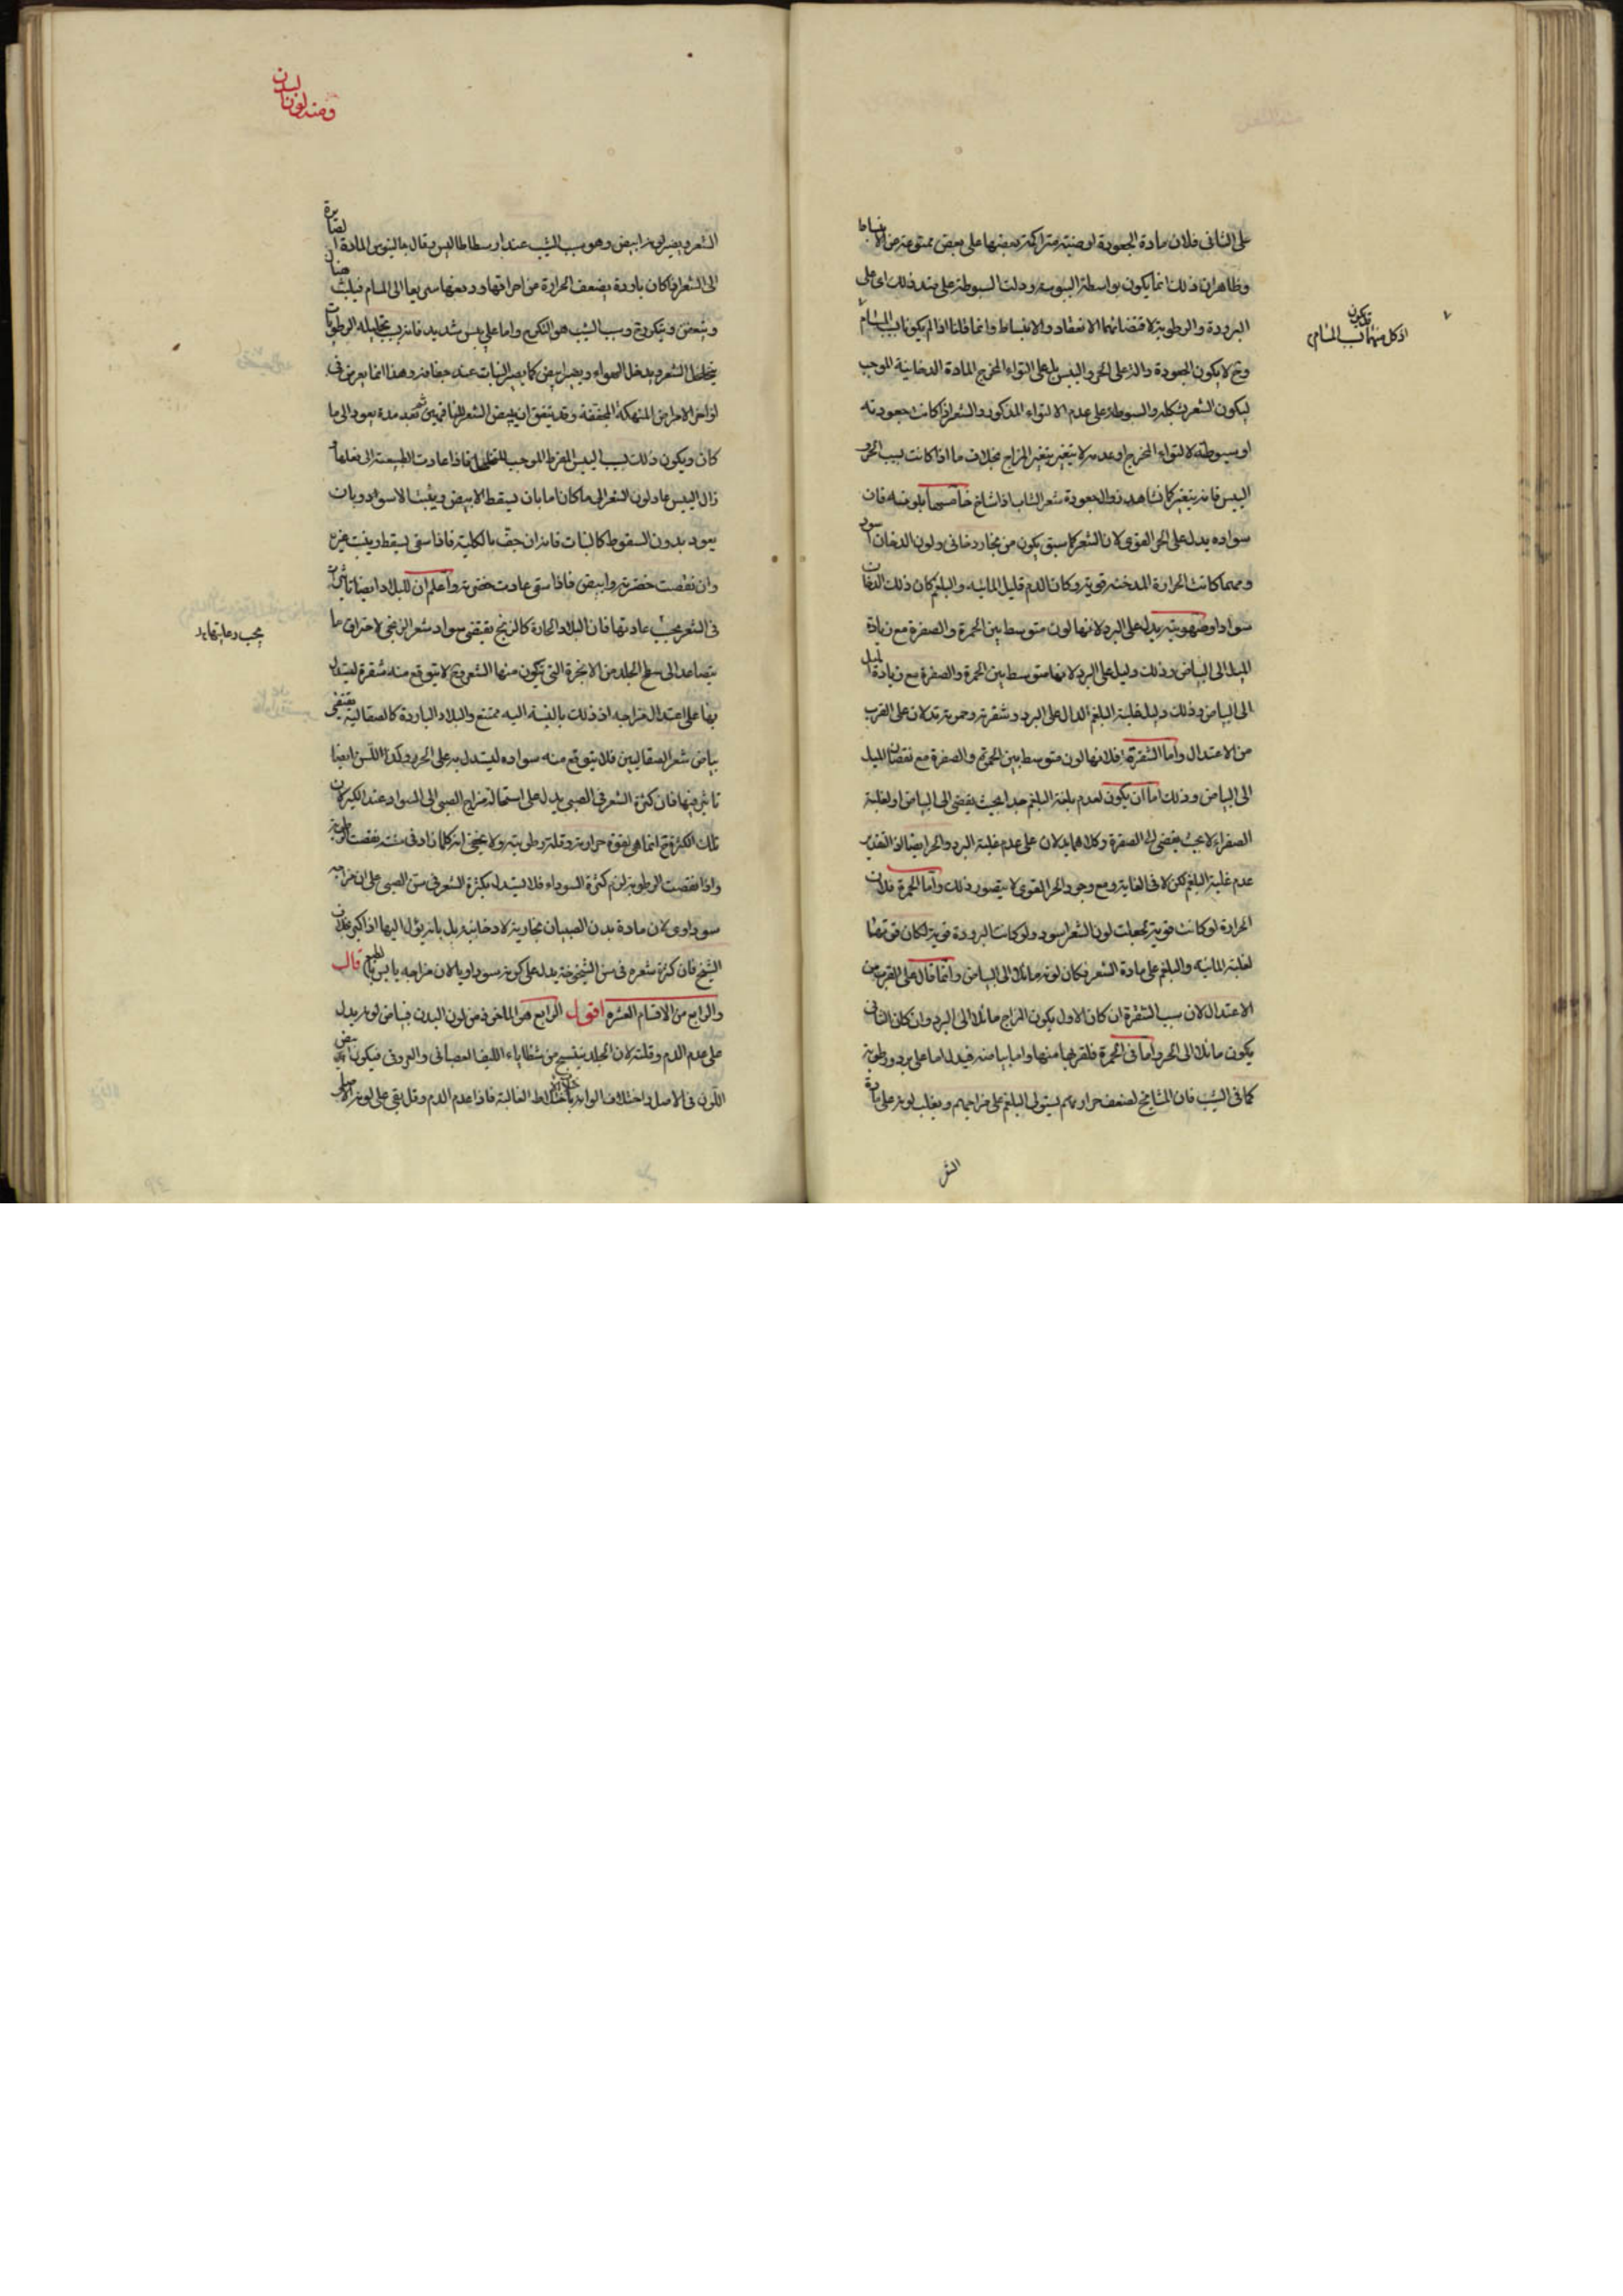 على الثانى فلان مادة الجعودة ارضية متراكمة بعضها على بعض ممنوعة من الانبساط
وظاهر ان ذلك انما يكون بواسطة اليبوسة ودلت السبوطة على ضد ذلك اى على
البرودة والرطوبة لاقتضائهما الانعقاد والانبساط وانما قلنا اذا لم يكونا بسبب المسام
اذ كل منهما قد يكون بسبب المسام
وح لا يكون الجعودة دالة على الحر واليبس بل على التواء المخرج المادة الدخانية الموجب
ليكون الشعر بشكله والسبوطة على عدم الالتواء المذكور والشعر اذا كانت جعودته
او سبوطته لالتواء المخرج او عدمه لا يتغير بتغير المزاج بخلاف ما اذا كانت بسبب الحر و
اليبس فانه يتغير كما نشاهد زوال جعودة شعر الشاب اذا شاخ خامسها بلونه فان
سواده يدل على الحر القوى لان الشعر كما سبق يكون من بخار دخانى ولون الدخان اسود
ومهما كانت الحرارة المدخنة قوية وكان الدم قليل المائية والبلغم كان ذلك الدخان
سوادا وصهوبته يدل على البرد لانها لون متوسط بين الحمرة والصفرة مع زيادة
الميل الى البياض وذلك دليل على البرد لانها متوسط بين الحمرة والصفرة مع زيادة الميل
الى البياض وذلك دليل غلبة البلغم الدال على البرد وشقرته وحمرته تدلان على القرب
من الاعتدال واما الشقرة فلانها لون متوسط بين الحمرة والصفرة مع نقصان الميل
الى البياض وذلك اما ان يكون لعدم غلبة البلغم جدا بحيث يفضى الى البياض او لغلبة
الصفراء لا بحيث يفضى الى الصفرة وكلاهما يدلان على عدم غلبة البرد والحر ايضا اذ التقدير
عدم غلبة البلغم لكن لا فى الغاية ومع وجود الحر القوى لا يتصور ذلك واما الحمرة فلان
الحرارة لو كانت قوية لجعلت لون الشعر اسود ولو كانت البرودة قوية لكان
لغلبة المائية والبلغم على مادة الشعر فكان لونه مائلا الى البياض وانما قال على القرب من
الاعتدال لان سبب الشقرة ان كان الاول يكون المزاج مائلا الى البرد وان كان الثانى
يكون مائلا الى الحر واما فى الحمرة فلقربها منها واما بياضه فيدل اما على برد ورطوبة
كما فى الشيب فان المشايخ لضعف حرارتهم يستولى البلغم على مزاجهم ويغلب لونه على مادة
الش
وضد لون البدن
الشعر ويصير لونه ابيض وهو سبب الشيب عند ارسطاطاليس وقال جالينوس المادة الصايرة
الى الشعر اذا كان باردة يضعف الحرارة عن احراقها ودفعها سريعا الى المسام فيلبث
ويتعفن ويتكرج وسبب الشيب هو التكرج واما على يبس شديد فانه بسبب تحليله الرطوبات
يتخلخل الشعر ويدخل الهواء ويصير ابيض كما يصير النبات عند جفافه وهذا انما يعرض فى
اواخر الامراض المنهكة المجففة وقد يتفق ان يبيض الشعر للناقهين ثم بعد مدة يعود الى ما
كان ويكون ذلك بسبب اليبس المفرط الموجب للتخلخل فاذا عادت الطبيعة الى فعلها و
زال اليبس عاد لون الشعر الى ما كان اما بان يسقط الابيض وينبت الاسود وبان
يعود بدون السقوط كالنبات فانه ان جف بالكلية فاذا سقى يسقط وينبت غيره
وان نقصت خضرته وابيض فاذا سقى عادت خضرته واعلم ان للبلاد ايضا تاثيرات
فى الشعر يجب عادتها فان البلاد الحارة كالزنج يقتضى سواد شعر الزنجى لاحتراق ما
يجب رعايتها
يتصاعد الى سطح الجلد من الابخرة التى يتكون منها الشعر وح لا يتوقع منه شقرة ليستدل
بها على اعتدال مزاجه اذ ذلك بالنسبة اليه ممتنع والبلاد الباردة كالصقالبة يقتضى
بياض شعر الصقاليين فلا يتوقع منه سواده ليستدل به على الحر وكذا للسن ايضا
تاثير فيها فان كثرة الشعر فى الصبى يدل على استحالة مزاج الصبى الى السواد عند الكبر لان
تلك الكثرة ح انما هى لقوة حرارته وقلة رطوبته ولا يخفى انه كلما زاد فى سنه نقصت رطوبته
واذا نقصت الرطوبة لزم كثرة السوداء فلا يستدل بكثرة الشعر فى سن الصبى على ان مزاجه
سوداوى لان مادة بدن الصبيان بخارية لا دخانية بل بانه يؤل اليها اذا كبر بخلاف
الشيخ فان كثرة شعره فى سن الشيخوخة يدل على كونه سوداويا لان مزاجه يابس بالطبع قال
والرابع من الاقسام العشرة اقول الرابع هو الماخوذ من لون البدن فبياض لونه يدل
على عدم الدم وقلته لان الجلد ينتسج من شظايا الليف العصبانى والعروقى فيكون ابيض
اللون فى الاصل واختلاف الوانه باختلاف الاخلاط الغالبة فاذا عدم الدم وقل بقى على لونه الاصلى